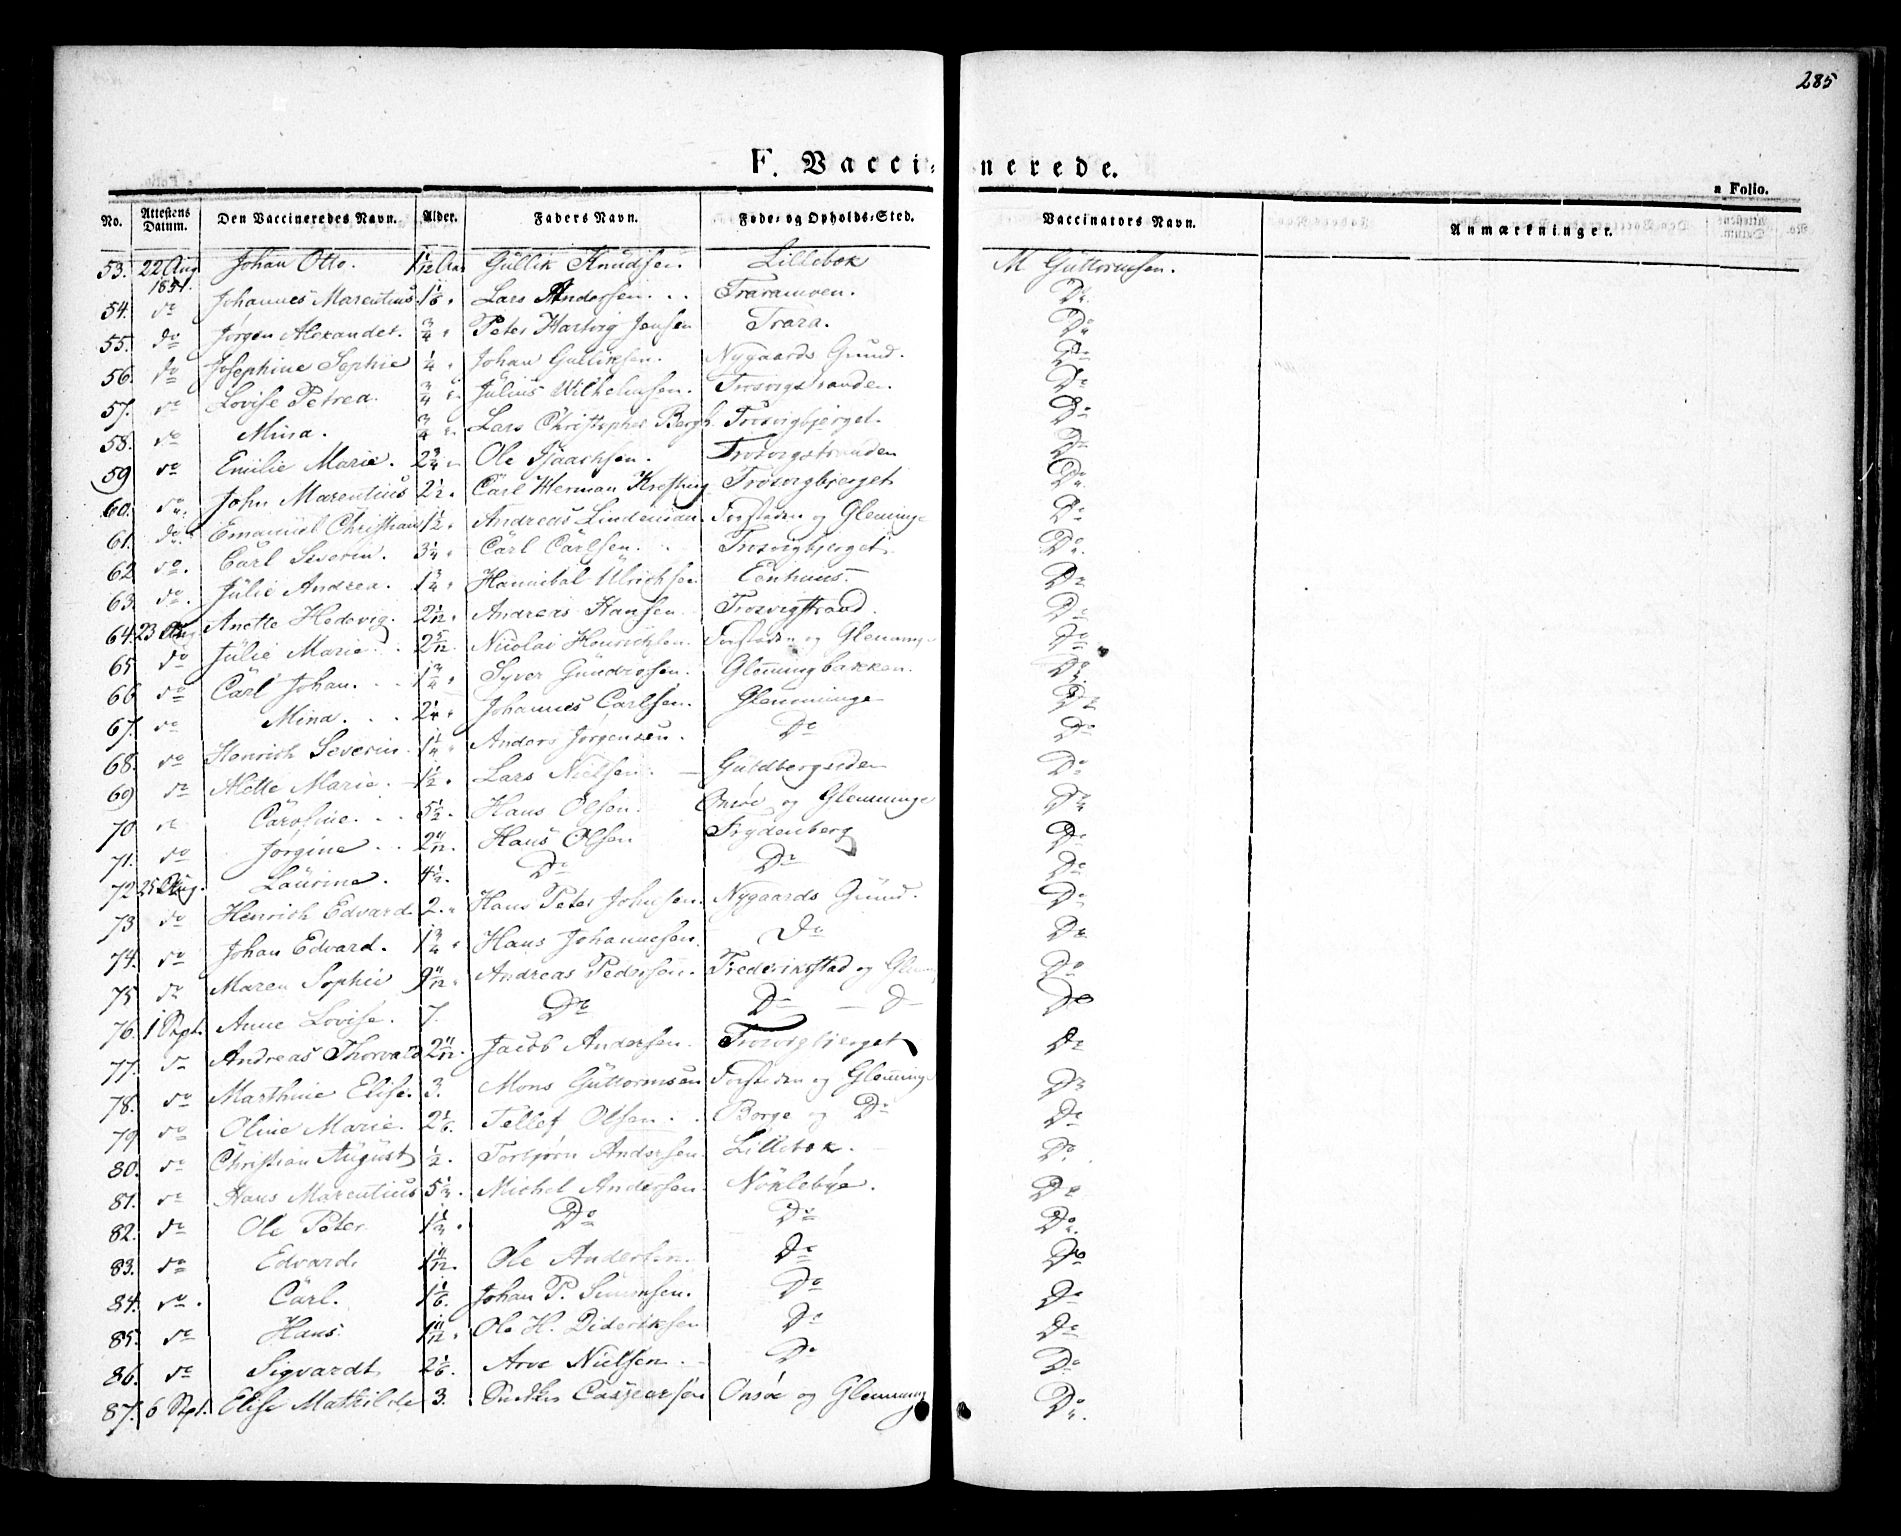 285
F. Vaccinerede.
a Folio.
No. Attestens Datum. Den Vaccineredes Navn. Alder. Faders Navn. Føde- og Opholds-Sted. Vaccinators Navn. Anmærkninger.
53. 22 Aug 1851. Johan Otto. 1 1/12 Aar Gullik Knudsen. Lillebek M Guttormsen.
54. do Johannes Marentius 1 1/6 Lars Andersen. Traramoen. Do
55. do Jørgen Alexander. 3/4 Peter Hartvig Jensen Trara. Do
56. do Josephine Sophie 1/4 Johan Gulliksen. Nygaards Grund. Do
57. do Lovise Petrea. 3/4 Julius Wilhelmsen. Trosvigstranden. Do
58. do Mina. 3/4 Lars Christopher Bergh. Trosvigbjerget. Do
59 do Emilie Marie. 2 3/4 Ole Isaachsen. Trosvigstranden Do
60. do John Marentius 2 1/2 Carl Herman Kresting Trosvigbjerget Do
61. do Emanuel Christian 1 1/2 Andreas Lindeman. Forstaden og Glemminge Do
62 do. Carl Severin. 3 1/4 Carl Carlsen. Trosvigbjerget. Do
63. do. Julie Andrea. 1 3/4 Hannibal Ulrichsen Eenhuus. Do
64. 23 Aug Anette Hedevig. 2 1/12 Andreas Hansen. Trosvigstrand. Do
65 do Julie Marie. 2 5/12 Nicolai Henrichsen. Forstaden og Glemminge Do
66 do Carl Johan. 1 3/4 Syver Gundersen. Glemmingbakken. Do
67. do Mina. 2 1/4 Johannes Carlsen. Glemminge Do
68. do Henrich Severin. 1 1/4 Anders Jørgensen. Do Do
69 do Mette Marie. 1 1/2 Lars Nielsen. Guldbergsiden Do
70 do Caroline. 5 1/2 Hans Olsen. Onsøe og Glemminge Do
71. do Jorgine. 2 11/12 Hans Olsen Frydenberg Do
72 25 Aug. Laurine. 4 1/2 Do Do Do
73 do Henrich Edvard 2. Hans Peter Johnsen. Nygaards Grund. Do
74. do Johan Edvard. 1 3/4 Hans Johannesen. Do Do
75 do Maren Sophie 9 11/12 Andreas Pedersen. Frederikstad og Glem Do
76. 1 Sept. Anne Lovise. 7. Do Do — D Do
77. do Andreas Thorvald 2 11/12 Jacob Andersen. Trosvigbjerget Do
78. do Marthine Elise. 3. Mons Guttormsen Forstaden og Glemminge Do
79 do Oline Marie. 2 1/6 Tellef Olsen. Borge og Do Do
80. do Christian August 1/2. Torbjørn Andersen. Lillebek. Do
81. do Hans Marentius 5 1/2. Michel Andersen. Nøklebye. Do
82. do Ole Peter 1 1/2. Do Do Do
83. do Edvard. 1 11/12. Ole Andersen. Do Do
84. do. Carl. 1 1/6. Johan P. Simensen. Do Do
85. do Hans. 1 11/12. Ole H. Dideriksen Do Do
86. do Sigvardt 2 1/6. Arve Nielsen. Do Do
87. 6 Sept. Elise Mathilde 3. Caspersen Onsøe og Glemming Do